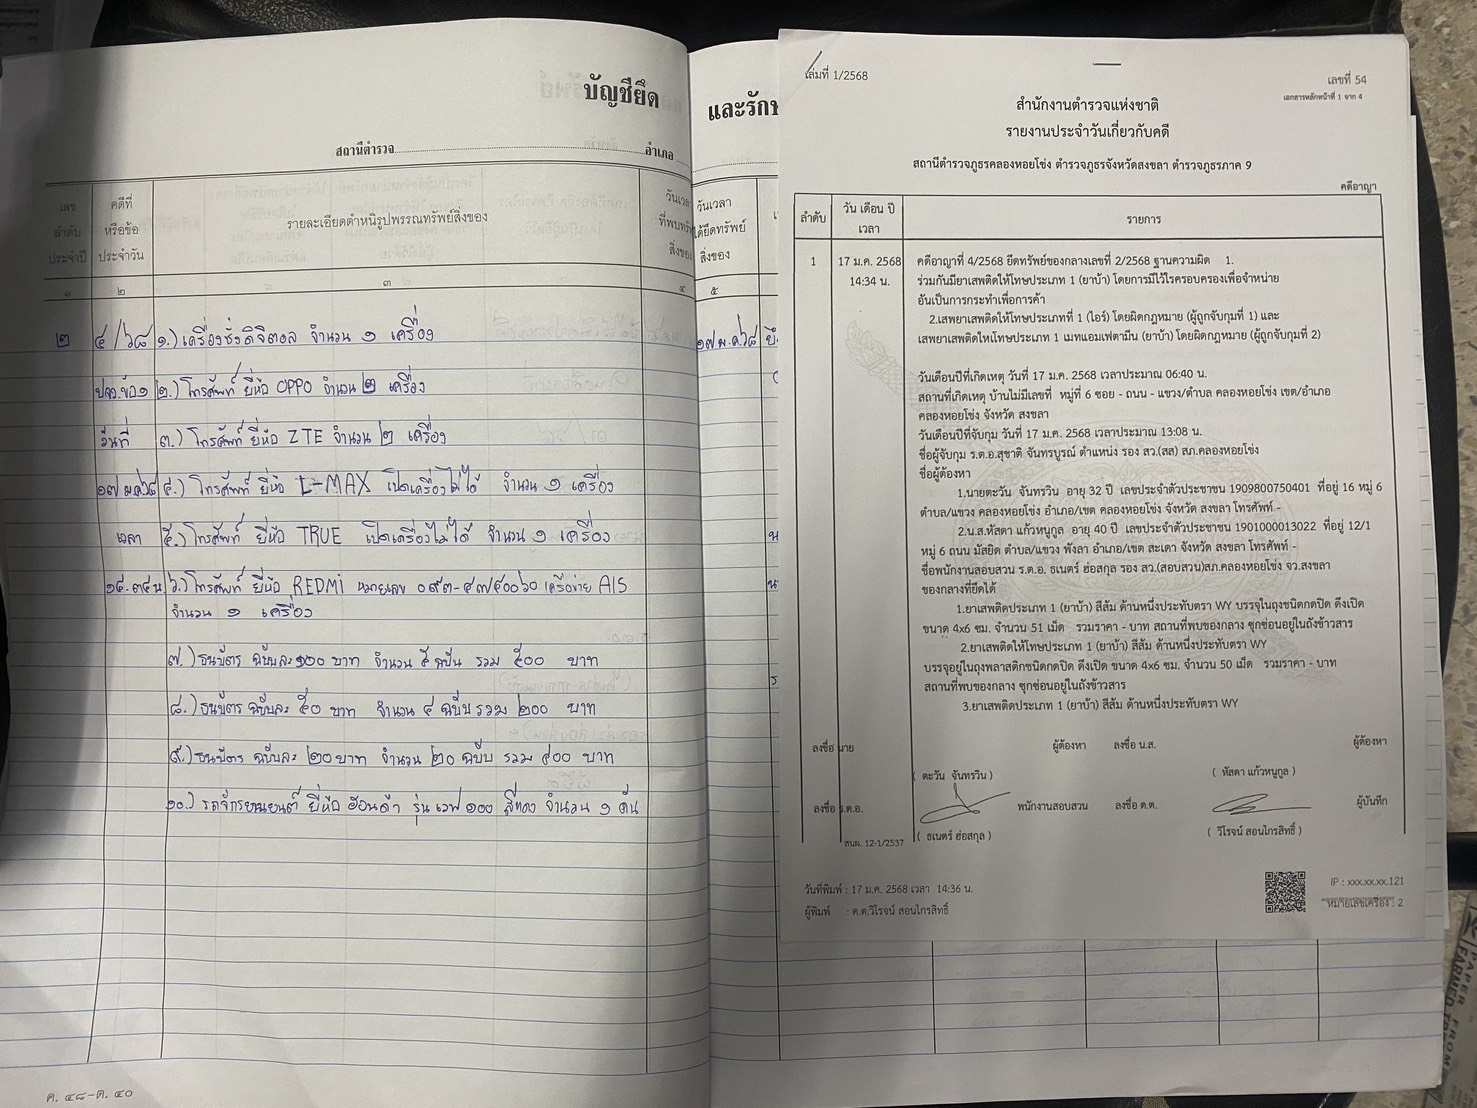 บัญชียึด
สถานีตำรวจ
อำเภอ
เลขลำดับประจำปี
คดีที่หรือข้อประจำวัน
รายละเอียดตำหนิรูปพรรณทรัพย์สิ่งของ
วันเวลาที่พบทรัพย์สิ่งของ
๑ ๒ ๓ ๔
๒ ๔/๖๘ ๑.) เครื่องชั่งดิจิตอล จำนวน ๑ เครื่อง
ปจว.ข้อ ๑ ๒.) โทรศัพท์ ยี่ห้อ OPPO จำนวน ๒ เครื่อง
วันที่ ๓.) โทรศัพท์ ยี่ห้อ ZTE จำนวน ๒ เครื่อง
๑๗ ม.ค ๖๘ ๔.) โทรศัพท์ ยี่ห้อ L-MAX เปิดเครื่องไม่ได้ จำนวน ๑ เครื่อง
เวลา ๕.) โทรศัพท์ ยี่ห้อ TRUE เปิดเครื่องไม่ได้ จำนวน ๑ เครื่อง
๑๔.๓๔ น ๖.) โทรศัพท์ ยี่ห้อ REDMI หมายเลข ๐๙๓-๕๗๕๐๐๖๐ เครือข่าย AIS
จำนวน ๑ เครื่อง
๗.) ธนบัตร ฉบับละ ๑๐๐ บาท จำนวน ๕ ฉบับ รวม ๕๐๐ บาท
๘.) ธนบัตร ฉบับละ ๕๐ บาท จำนวน ๔ ฉบับ รวม ๒๐๐ บาท
๙.) ธนบัตร ฉบับละ ๒๐ บาท จำนวน ๒๐ ฉบับ รวม ๔๐๐ บาท
๑๐.) รถจักรยานยนต์ ยี่ห้อ ฮอนด้า รุ่น เวฟ ๑๐๐ สีแดง จำนวน ๑ คัน
ค. ๔๘-ต. ๔๐
และรักษ
วันเวลา
ได้ยึดทรัพย์
สิ่งของ
๕
๑๗ ม.ค ๖๘
เล่มที่ 1/2568
เลขที่ 54
เอกสารหลักหน้าที่ 1 จาก 4
สำนักงานตำรวจแห่งชาติ
รายงานประจำวันเกี่ยวกับคดี
สถานีตำรวจภูธรคลองหอยโข่ง ตำรวจภูธรจังหวัดสงขลา ตำรวจภูธรภาค 9
คดีอาญา
ลำดับ
วัน เดือน ปี
เวลา
รายการ
1 17 ม.ค. 2568 คดีอาญาที่ 4/2568 ยึดทรัพย์ของกลางเลขที่ 2/2568 ฐานความผิด 1.
14:34 น. ร่วมกันมียาเสพติดให้โทษประเภท 1 (ยาบ้า) โดยการมีไว้ไรครอบครองเพื่อจำหน่าย
อันเป็นการกระทำเพื่อการค้า
2.เสพยาเสพติดให้โทษประเภทที่ 1 (ไอร์) โดยผิดกฎหมาย (ผู้ถูกจับกุมที่ 1) และ
เสพยาเสพติดใหโทษประเภท 1 เมทแอมเฟตามีน (ยาบ้า) โดยผิดกฎหมาย (ผู้ถูกจับกุมที่ 2)
วันเดือนปีที่เกิดเหตุ วันที่ 17 ม.ค. 2568 เวลาประมาณ 06:40 น.
สถานที่เกิดเหตุ บ้านไม่มีเลขที่ หมู่ที่ 6 ซอย - ถนน - แขวง/ตำบล คลองหอยโข่ง เขต/อำเภอ
คลองหอยโข่ง จังหวัด สงขลา
วันเดือนปีที่จับกุม วันที่ 17 ม.ค. 2568 เวลาประมาณ 13:08 น.
ชื่อผู้จับกุม ร.ต.อ.สุชาติ จันทรบูรณ์ ตำแหน่ง รอง สว.(สส) สภ.คลองหอยโข่ง
ชื่อผู้ต้องหา
1.นายตะวัน จันทรวิน อายุ 32 ปี เลขประจำตัวประชาชน 1909800750401 ที่อยู่ 16 หมู่ 6
ตำบล/แขวง คลองหอยโข่ง อำเภอ/เขต คลองหอยโข่ง จังหวัด สงขลา โทรศัพท์ -
2.น.ส.หัสดา แก้วหนูกูล อายุ 40 ปี เลขประจำตัวประชาชน 1901000013022 ที่อยู่ 12/1
หมู่ 6 ถนน มัสยิด ตำบล/แขวง พังลา อำเภอ/เขต สะเดา จังหวัด สงขลา โทรศัพท์ -
ชื่อพนักงานสอบสวน ร.ต.อ. ธเนตร์ ฮ่อสกุล รอง สว.(สอบสวน)สภ.คลองหอยโข่ง จว.สงขลา
ของกลางที่ยึดได้
1.ยาเสพติดประเภท 1 (ยาบ้า) สีส้ม ด้านหนึ่งประทับตรา WY บรรจุในถุงชนิดกดปิด ดึงเปิด
ขนาด 4x6 ซม. จำนวน 51 เม็ด รวมราคา - บาท สถานที่พบของกลาง ซุกซ่อนอยู่ในถังข้าวสาร
2.ยาเสพติดให้โทษประเภท 1 (ยาบ้า) สีส้ม ด้านหนึ่งประทับตรา WY
บรรจุอยู่ในถุงพลาสติกชนิดกดปิด ดึงเปิด ขนาด 4x6 ซม. จำนวน 50 เม็ด รวมราคา - บาท
สถานที่พบของกลาง ซุกซ่อนอยู่ในถังข้าวสาร
3.ยาเสพติดประเภท 1 (ยาบ้า) สีส้ม ด้านหนึ่งประทับตรา WY
ลงชื่อ นาย ผู้ต้องหา ลงชื่อ น.ส. ผู้ต้องหา
( ตะวัน จันทรวิน ) ( หัสดา แก้วหนูกูล )
ลงชื่อ ร.ต.อ. พนักงานสอบสวน ลงชื่อ ด.ต. ผู้บันทึก
( ธเนตร์ ฮ่อสกุล ) ( วิโรจน์ สอนไกรสิทธิ์ )
สนผ. 12-1/2537
วันที่พิมพ์ : 17 ม.ค. 2568 เวลา 14:36 น.
IP : xxx.xx.xx.121
ผู้พิมพ์ : ด.ต.วิโรจน์ สอนไกรสิทธิ์
หมายเลขเครื่อง : 2
PAPER FROM
FARMED TR